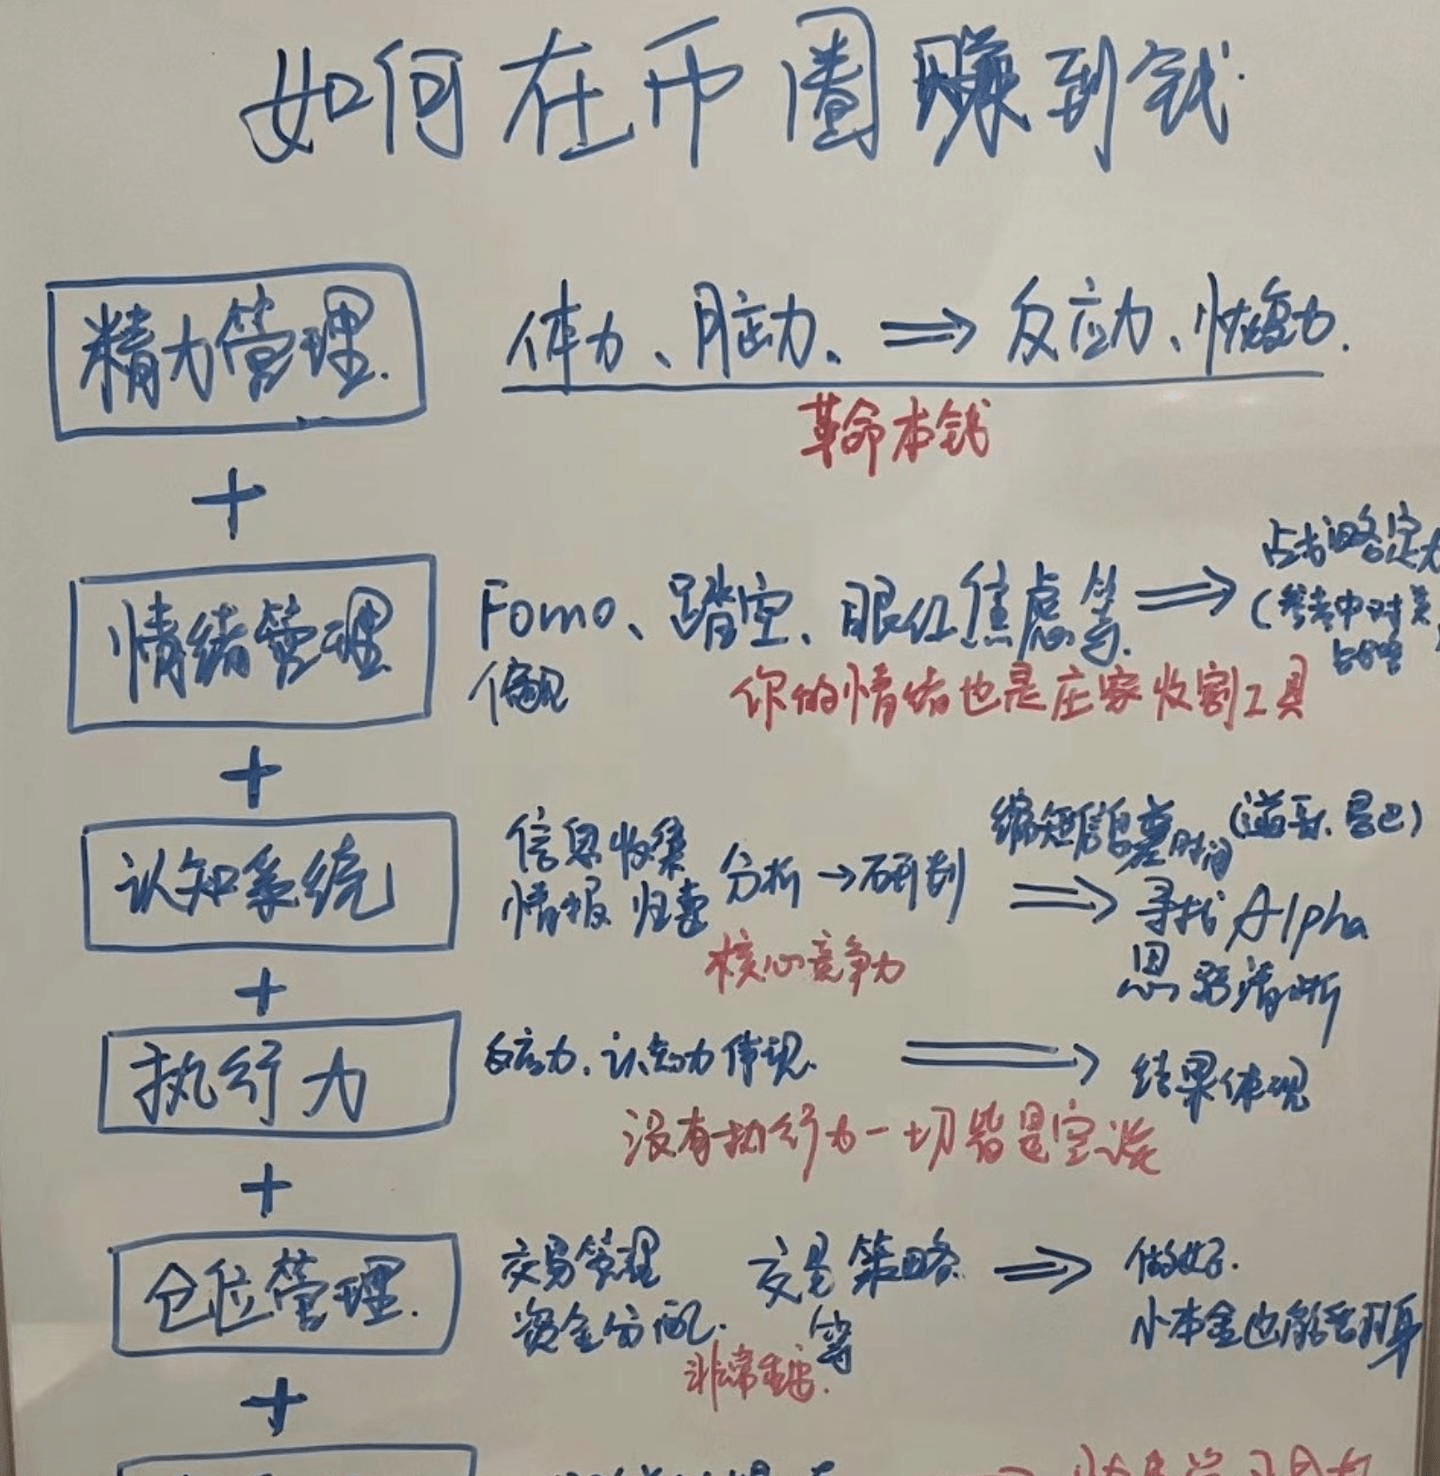 如何在币圈赚到钱.
精力管理.
体力、脑力、⇒ 反应力、恢复力.
革命本钱
+
情绪管理
Fomo、踏空、眼红焦虑等. ⇒ 战略定力
偏见
(参考中对美战略)
你的情绪也是庄家收割工具
+
认知系统
信息收集
情报归类
分析→研判
⇒
缩短信息差时间
寻找Alpha
思路清晰
核心竞争力
+
执行力
反应力、认知力体现. ⇒ 结果体现
没有执行力一切皆是空谈
+
仓位管理.
交易管理
资金分配.
交易策略
等
⇒
做好.
小本金也能翻身
非常重要.
+